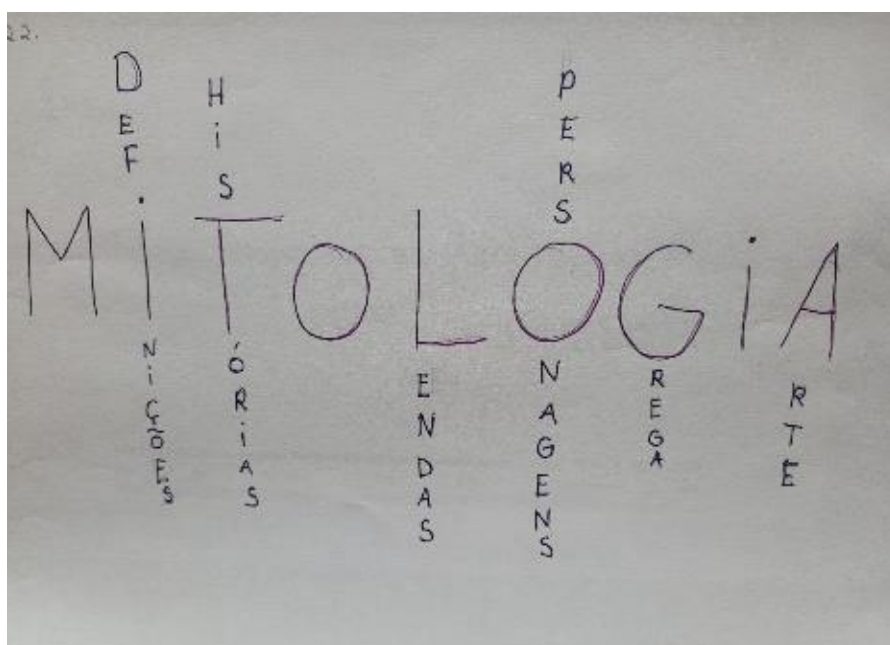 22.
MiTOLOGiA
DEFiNiÇÕES
HiSTÓRiAS
LENDAS
PERSONAGENS
GREGA
ARTE